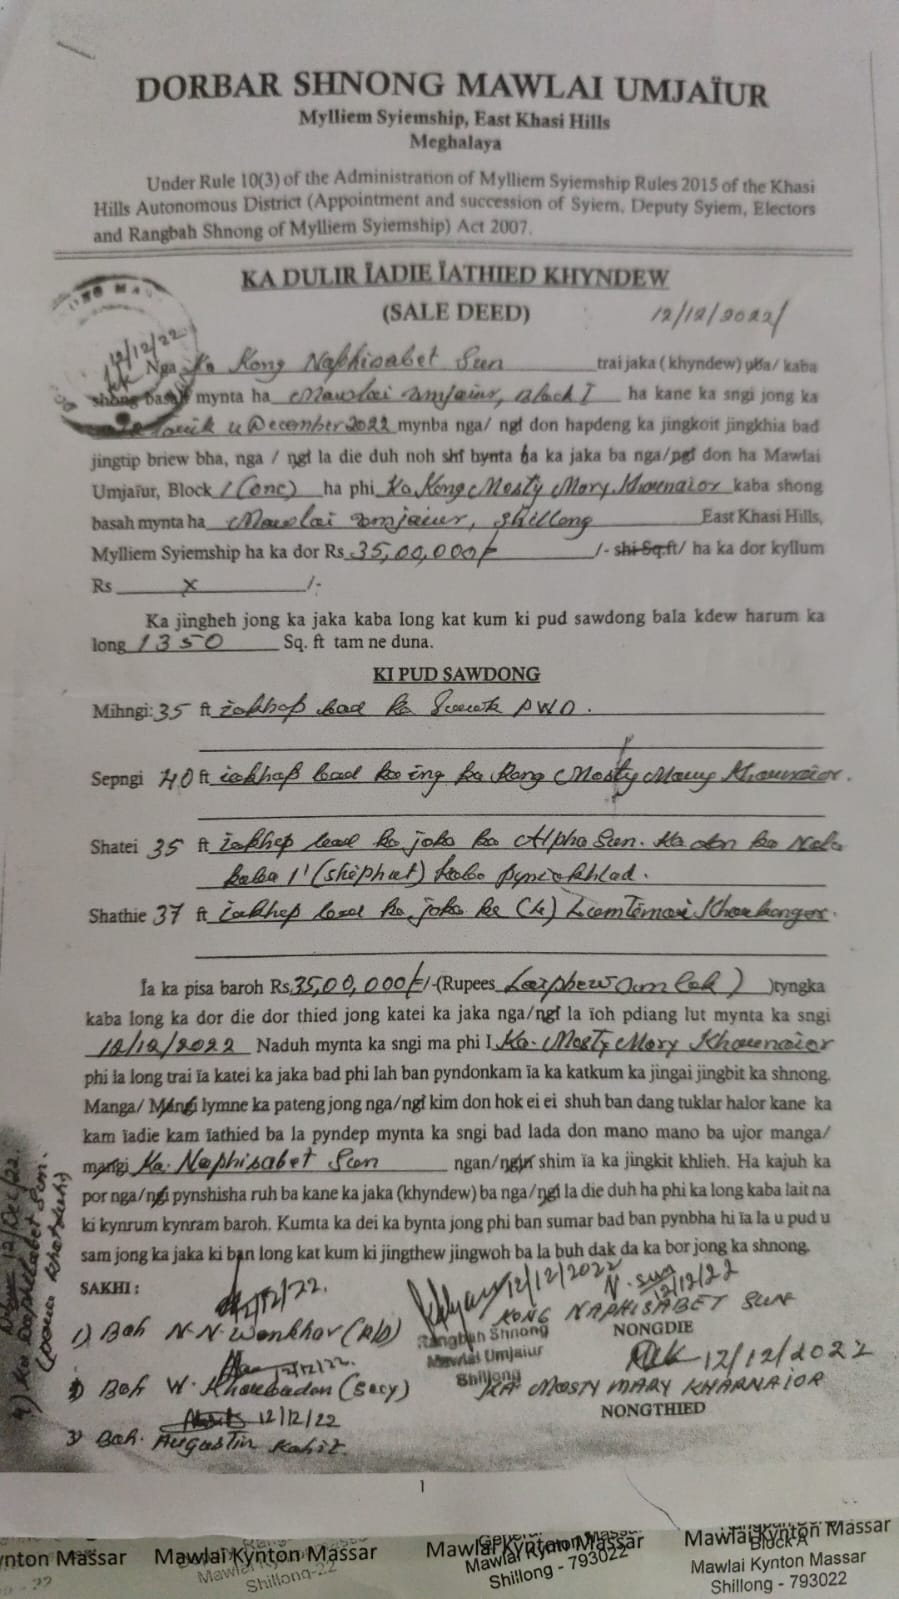 DORBAR SHNONG MAWLAI UMJAÏUR
Mylliem Syiemship, East Khasi Hills
Meghalaya
Under Rule 10(3) of the Administration of Mylliem Syiemship Rules 2015 of the Khasi
Hills Autonomous District (Appointment and succession of Syiem, Deputy Syiem, Electors
and Rangbah Shnong of Mylliem Syiemship) Act 2007.
KA DULIR ÏADIE ÏATHIED KHYNDEW
(SALE DEED)
12/12/2022/
12/12/22
Nga Ka Kong Naphisabet Sun trai jaka ( khyndew) uba/ kaba
shong basah mynta ha Mawlai Umjaiur, Block I ha kane ka sngi jong ka
u December 2022 mynba nga/ ngi don hapdeng ka jingkoit jingkhia bad
jingtip briew bha, nga / ngi la die duh noh shi bynta ba ka jaka ba nga/ngi don ha Mawlai
Umjaïur, Block 1 (One) ha phi Ka Kong Mosty Mary Kharnaior kaba shong
basah mynta ha Mawlai Umjaiur, Shillong East Khasi Hills,
Mylliem Syiemship ha ka dor Rs 35,00,000/- /- shi Sq.ft/ ha ka dor kyllum
Rs x /-
Ka jingheh jong ka jaka kaba long kat kum ki pud sawdong bala kdew harum ka
long 1350 Sq. ft tam ne duna.
KI PUD SAWDONG
Mihngi: 35 ft ïakhap bad ka Surok PWD.
Sepngi 40 ft ïakhap bad ka ïng ka Kong Mosty Mary Kharnaior.
Shatei 35 ft ïakhap bad ka jaka ka Alpha Sun. Ka don ka Nala
kaba 1' (shiphut) kaba pyniakhlad.
Shathie 37 ft ïakhap bad ka jaka ka (L)
Ïa ka pisa baroh Rs. 35,00,000/-/-(Rupees Laiphew san lak) )tyngka
kaba long ka dor die dor thied jong katei ka jaka nga/ngi la ïoh pdiang lut mynta ka sngi
12/12/2022 Naduh mynta ka sngi ma phi I Ka. Mosty Mary Kharnaior
phi la long trai ïa katei ka jaka bad phi lah ban pyndonkam ïa ka katkum ka jingai jingbit ka shnong.
Manga/ Mangi lymne ka pateng jong nga/ngi kim don hok ei ei shuh ban dang tuklar halor kane ka
kam ïadie kam ïathied ba la pyndep mynta ka sngi bad lada don mano mano ba ujor manga/
mangi Ka. Naphisabet Sun ngan/ngin shim ïa ka jingkit khlieh. Ha kajuh ka
por nga/ngi pynshisha ruh ba kane ka jaka (khyndew) ba nga/ngi la die duh ha phi ka long kaba lait na
ki kynrum kynram baroh. Kumta ka dei ka bynta jong phi ban sumar bad ban pynbha hi ïa la u pud u
sam jong ka jaka ki ban long kat kum ki jingthew jingwoh ba la buh dak da ka bor jong ka shnong.
SAKHI :
12/12/22.
1) Bah N.N. Wankhar (R/S)
12/12/22.
2) Bah W. Kharbadon (Secy)
12/12/22
3) Bah. Augustin Kahit.
12/12/2022
Rangbah Shnong
Mawlai Umjaiur
Shillong
N. Sun
12/12/22
KONG NAPHISABET SUN
NONGDIE
12/12/2022
KA MOSTY MARY KHARNAIOR
NONGTHIED
12/Dec/22.
1
Kynton Massar
Mawlai Kynton Massar
Shillong-22
Mawlai Kynton Massar
Mawlai Kynton Massar
Shillong - 793022
Mawlai Kynton Massar
Block A
Mawlai Kynton Massar
Shillong - 793022